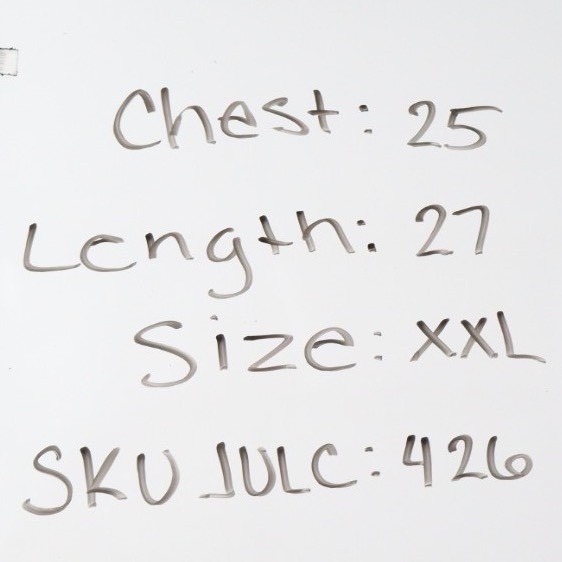 Chest: 25
Length: 27
Size: XXL
SKU JULC: 426